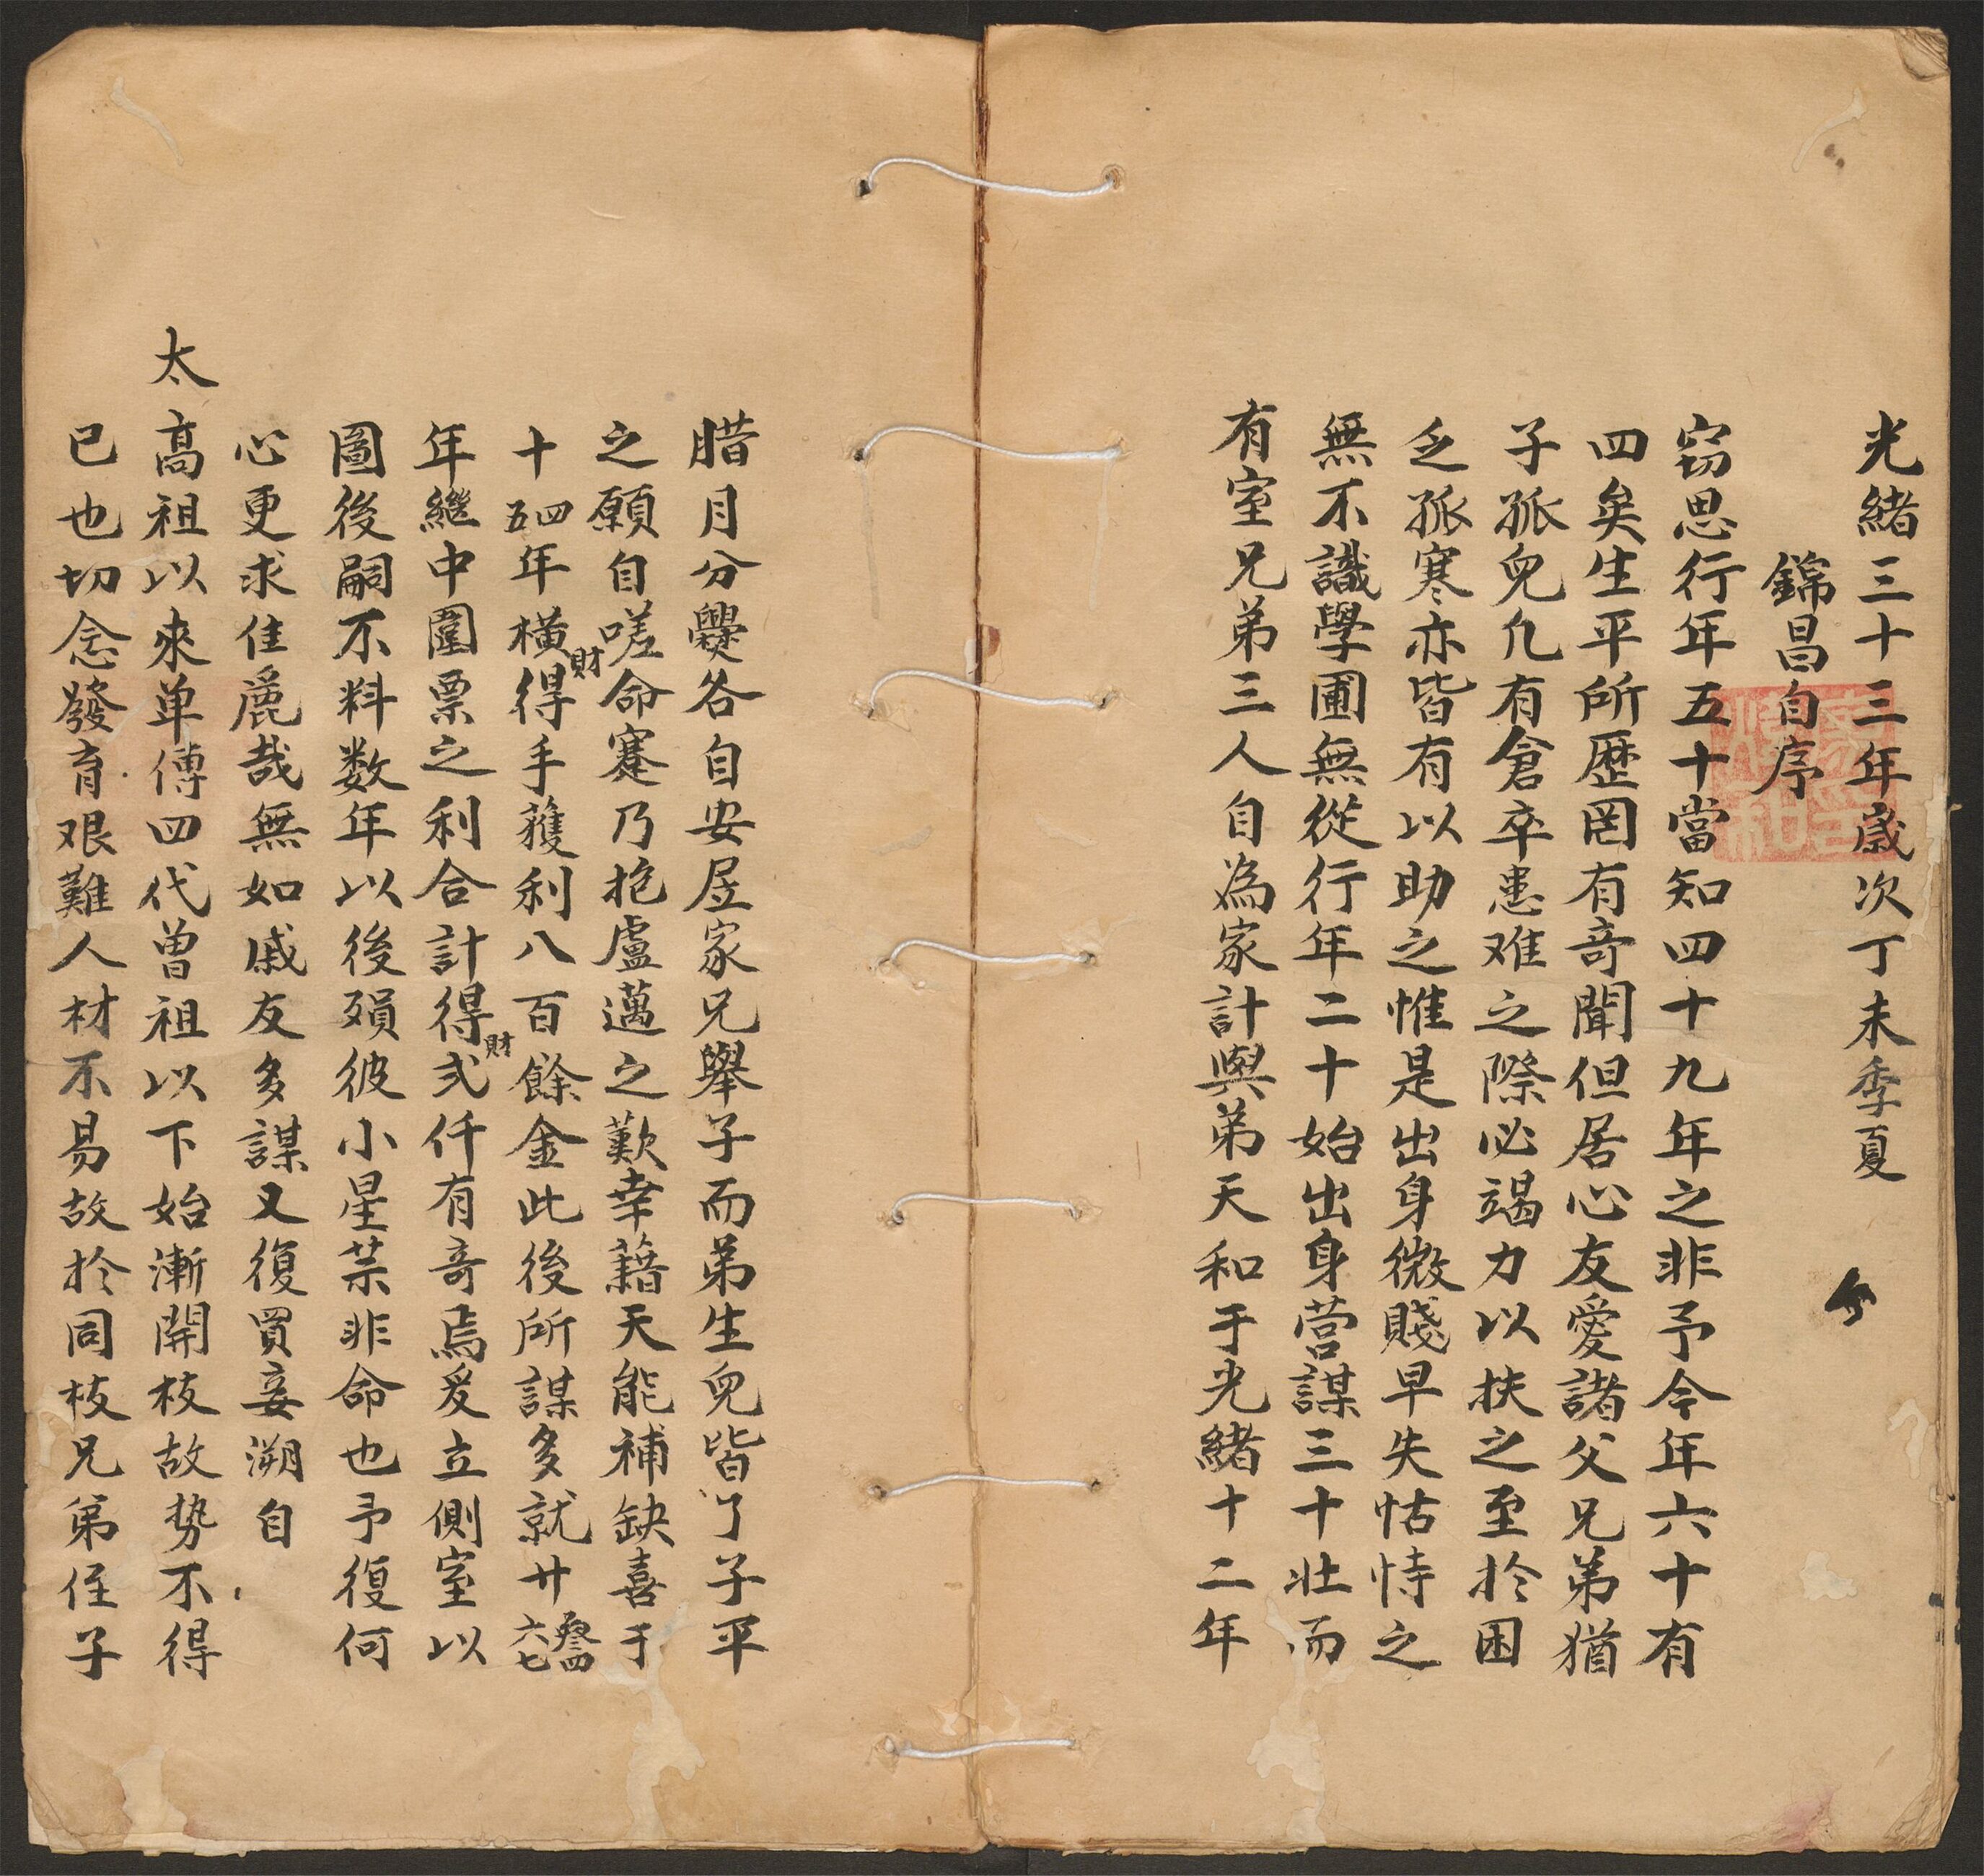 光緒三十三年歲次丁未季夏
錦昌自序
窃思行年五十當知四十九年之非予今年六十有
四矣生平所歷罔有奇聞但居心友愛諸父兄弟猶
子孤兒凢有倉卒患难之際必竭力以扶之至於困
乏孤寒亦皆有以助之惟是出身微賤早失怙恃之
無不識學圃無從行年二十始出身营謀三十壯而
有室兄弟三人自為家計與弟天和于光緒十二年
腊月分爨各自安居家兄舉子而弟生兒皆了子平
之願自嗟命蹇乃抱盧邁之歎幸藉天能補缺喜于
十四五年橫得財手獲利八百餘金此後所謀多就廿叁四六七
年繼中圍票之利合計得財弍仟有奇焉爰立側室以
圖後嗣不料数年以後殞彼小星茶非命也予復何
心更求佳麗哉無如戚友多謀又復買妾溯自
太高祖以來单傳四代曾祖以下始漸開枝故势不得
已也切念發育艰難人材不易故於同枝兄弟侄子